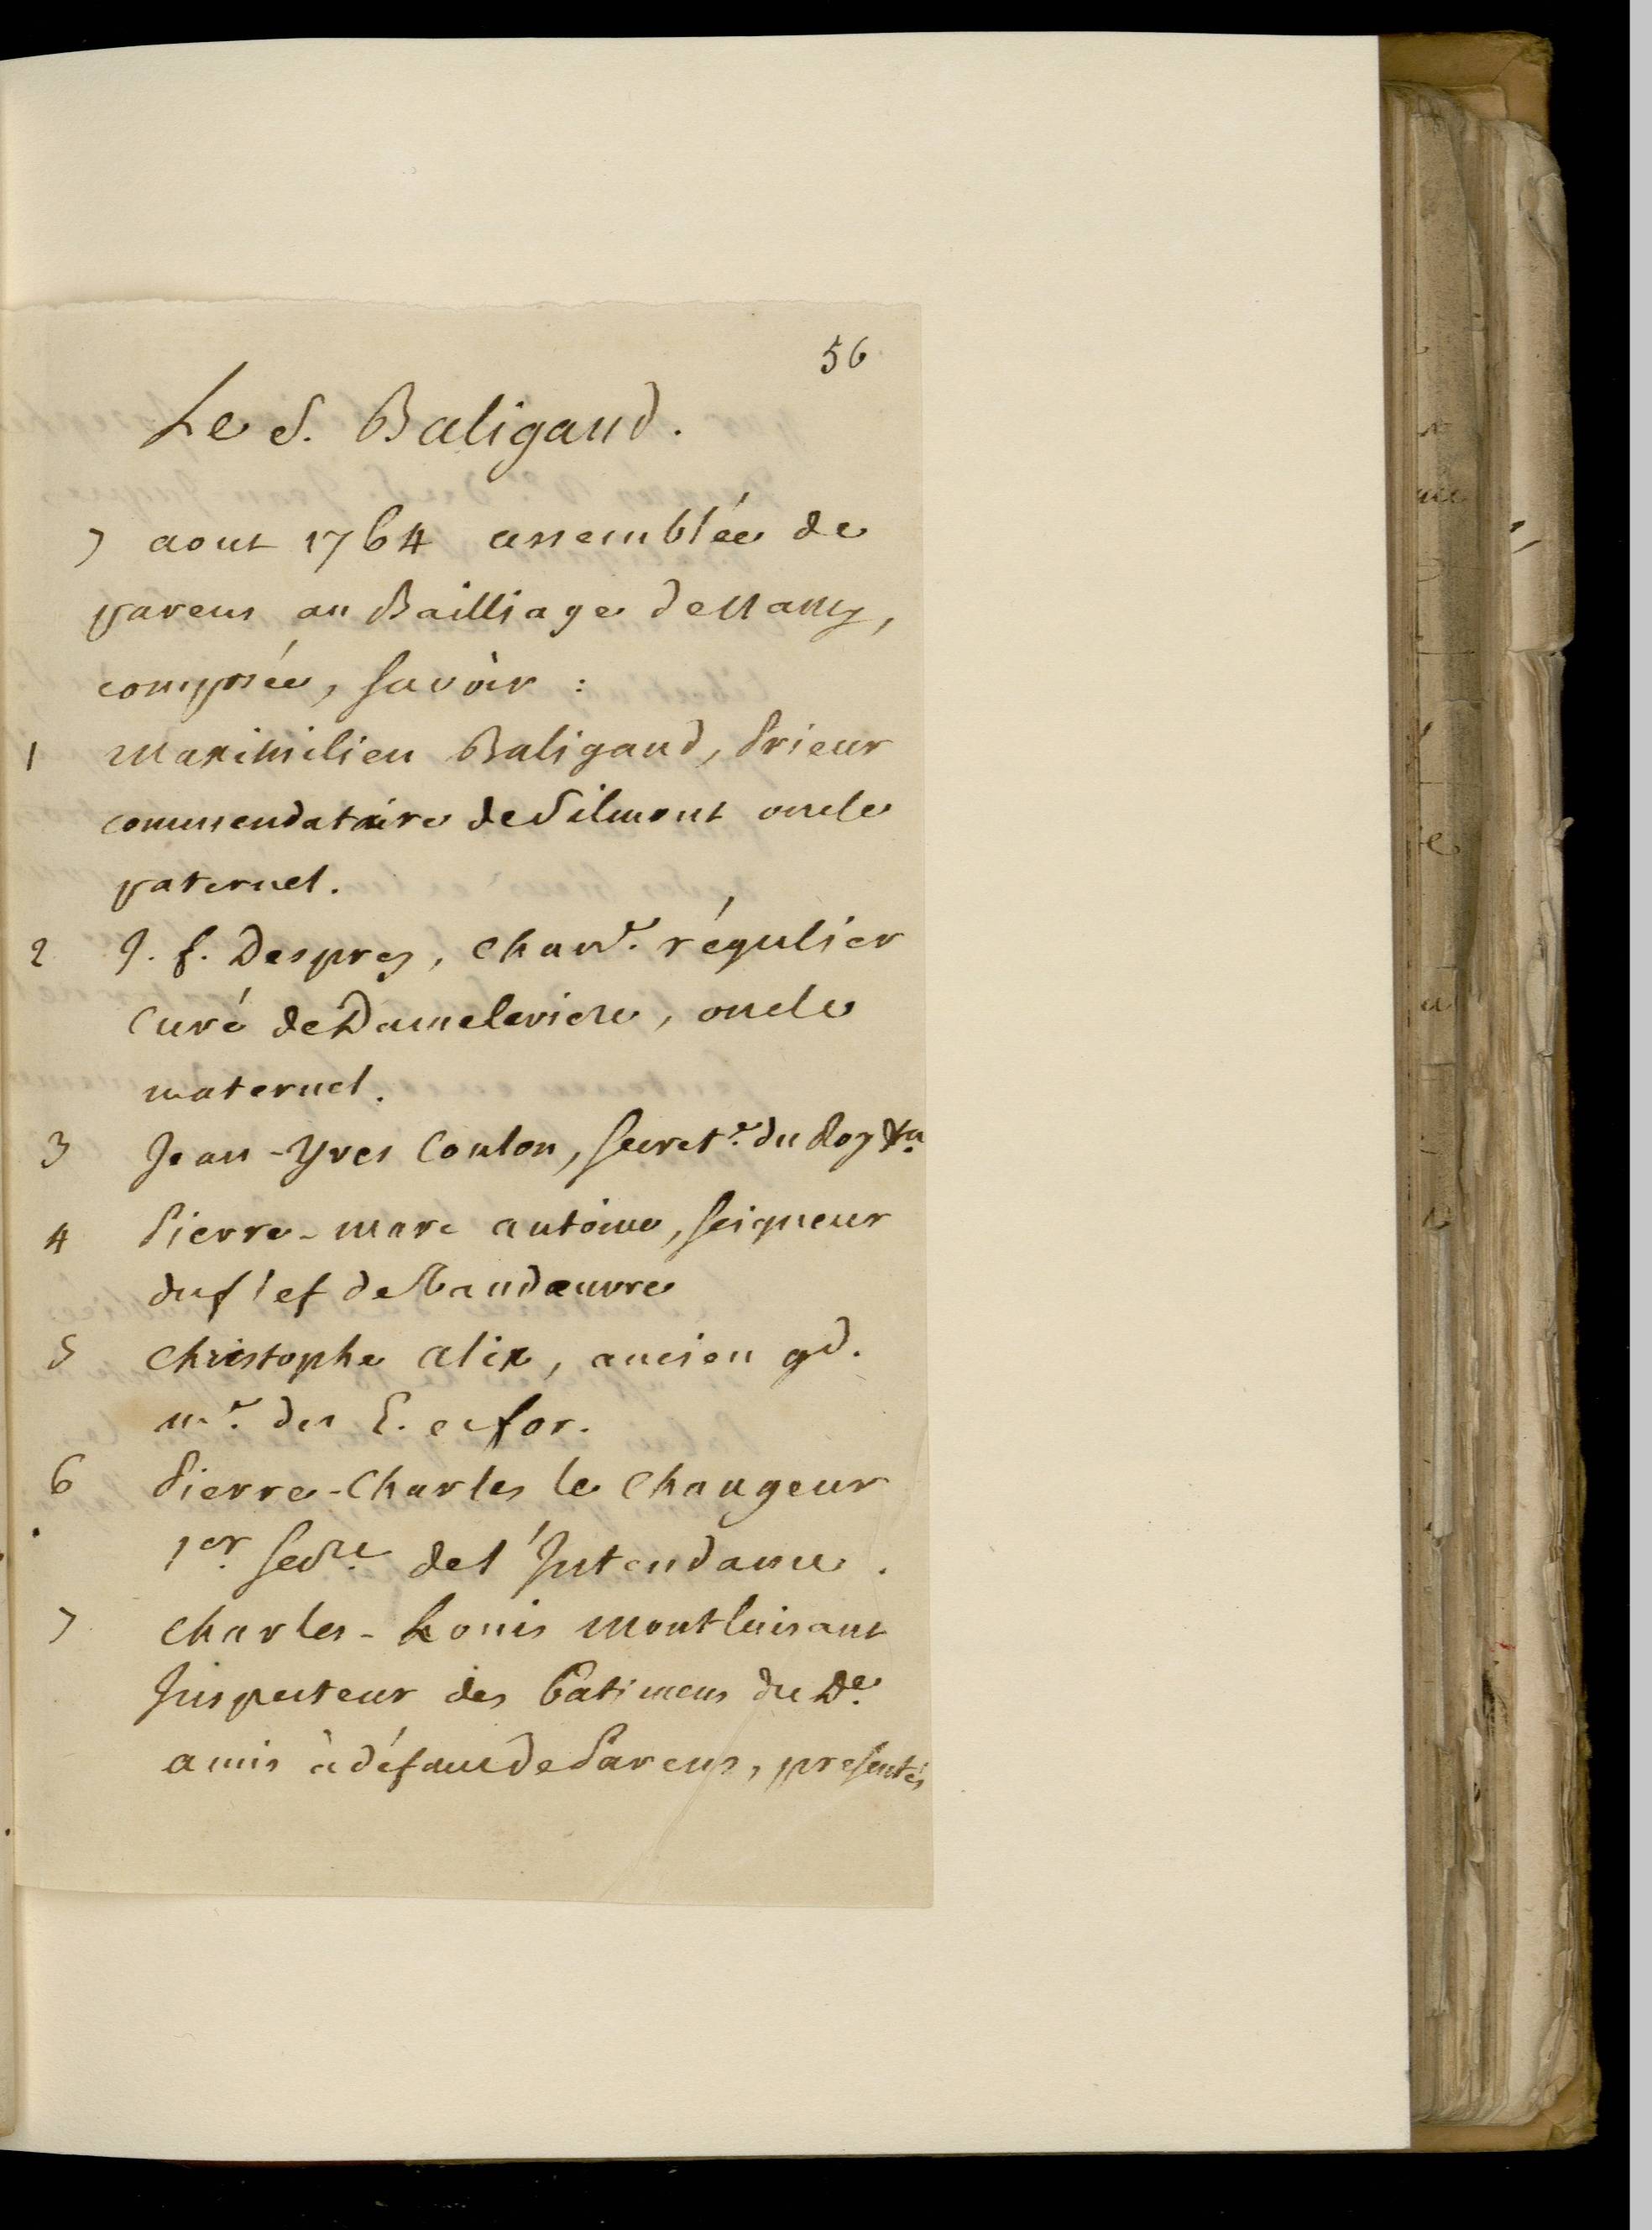 56
Le S. Baligand.
7 aout 1764 assemblée de
parens au Bailliage de Nancy,
composée, savoir :
1 Maximilien Baligand, Prieur
commendataire de Silmont oncle
paternel.
2 J. f. Desprez, chan.e régulier
Curé de Dameleviere, oncle
maternel.
3 Jean-Yves Coulon, secret.e du Roy
4 Pierre-marc antoine, seigneur
du fief de Vandœuvre
5 Christophe alix, ancien gd.
m.e des E. et for.
6 Pierre-Charles le Changeur
1er. secre. de l'Intendance.
7 Charles-Louis Montluisant
Inspecteur des bâtimens du De.
amis à défaut de Parens, présentés